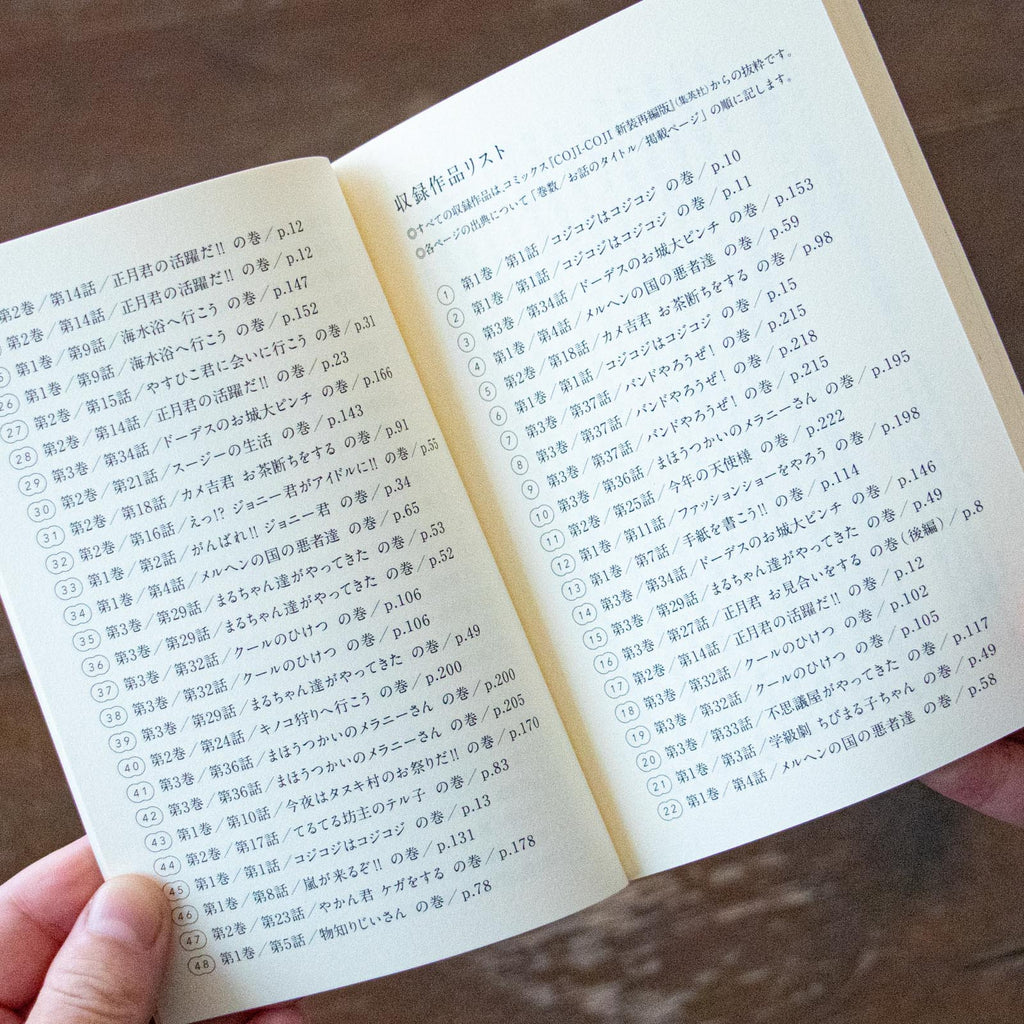 収録作品リスト
◎すべての収録作品は、コミックス『COJI-COJI 新装再編版』(集英社)からの抜粋です。
◎各ページの出典について「巻数/お話のタイトル/掲載ページ」の順に記します。
① 第1巻/第1話/コジコジはコジコジ の巻/p.10
② 第1巻/第1話/コジコジはコジコジ の巻/p.11
③ 第3巻/第34話/ドーデスのお城大ピンチ の巻/p.153
④ 第1巻/第4話/メルヘンの国の悪者達 の巻/p.59
⑤ 第2巻/第18話/カメ吉君 お茶断ちをする の巻/p.98
⑥ 第1巻/第1話/コジコジはコジコジ の巻/p.15
⑦ 第3巻/第37話/バンドやろうぜ! の巻/p.215
⑧ 第3巻/第37話/バンドやろうぜ! の巻/p.218
⑨ 第3巻/第37話/バンドやろうぜ! の巻/p.215
⑩ 第3巻/第36話/まほうつかいのメラニーさん の巻/p.195
⑪ 第2巻/第25話/今年の天使様 の巻/p.222
⑫ 第1巻/第11話/ファッションショーをやろう の巻/p.198
⑬ 第1巻/第7話/手紙を書こう!! の巻/p.114
⑭ 第3巻/第34話/ドーデスのお城大ピンチ の巻/p.146
⑮ 第3巻/第29話/まるちゃん達がやってきた の巻/p.49
⑯ 第3巻/第27話/正月君 お見合いをする の巻(後編)/p.8
⑰ 第2巻/第14話/正月君の活躍だ!! の巻/p.12
⑱ 第3巻/第32話/クールのひけつ の巻/p.102
⑲ 第3巻/第32話/クールのひけつ の巻/p.105
⑳ 第3巻/第33話/不思議屋がやってきた の巻/p.117
㉑ 第1巻/第3話/学級劇 ちびまる子ちゃん の巻/p.49
㉒ 第1巻/第4話/メルヘンの国の悪者達 の巻/p.58
第2巻/第14話/正月君の活躍だ!! の巻/p.12
第2巻/第14話/正月君の活躍だ!! の巻/p.12
第1巻/第9話/海水浴へ行こう の巻/p.147
㉖ 第1巻/第9話/海水浴へ行こう の巻/p.152
㉗ 第2巻/第15話/やすひこ君に会いに行こう の巻/p.31
㉘ 第2巻/第14話/正月君の活躍だ!! の巻/p.23
㉙ 第3巻/第34話/ドーデスのお城大ピンチ の巻/p.166
㉚ 第2巻/第21話/スージーの生活 の巻/p.143
㉛ 第2巻/第18話/カメ吉君 お茶断ちをする の巻/p.91
㉜ 第2巻/第16話/えっ!? ジョニー君がアイドルに!! の巻/p.55
㉝ 第1巻/第2話/がんばれ!! ジョニー君 の巻/p.34
㉞ 第1巻/第4話/メルヘンの国の悪者達 の巻/p.65
㉟ 第3巻/第29話/まるちゃん達がやってきた の巻/p.53
㊱ 第3巻/第29話/まるちゃん達がやってきた の巻/p.52
㊲ 第3巻/第32話/クールのひけつ の巻/p.106
㊳ 第3巻/第32話/クールのひけつ の巻/p.106
㊴ 第3巻/第29話/まるちゃん達がやってきた の巻/p.49
㊵ 第2巻/第24話/キノコ狩りへ行こう の巻/p.200
㊶ 第3巻/第36話/まほうつかいのメラニーさん の巻/p.200
㊷ 第3巻/第36話/まほうつかいのメラニーさん の巻/p.205
㊸ 第1巻/第10話/今夜はタヌキ村のお祭りだ!! の巻/p.170
㊹ 第2巻/第17話/てるてる坊主のテル子 の巻/p.83
㊺ 第1巻/第1話/コジコジはコジコジ の巻/p.13
㊻ 第1巻/第8話/嵐が来るぞ!! の巻/p.131
㊼ 第2巻/第23話/やかん君 ケガをする の巻/p.178
㊽ 第1巻/第5話/物知りじいさん の巻/p.78